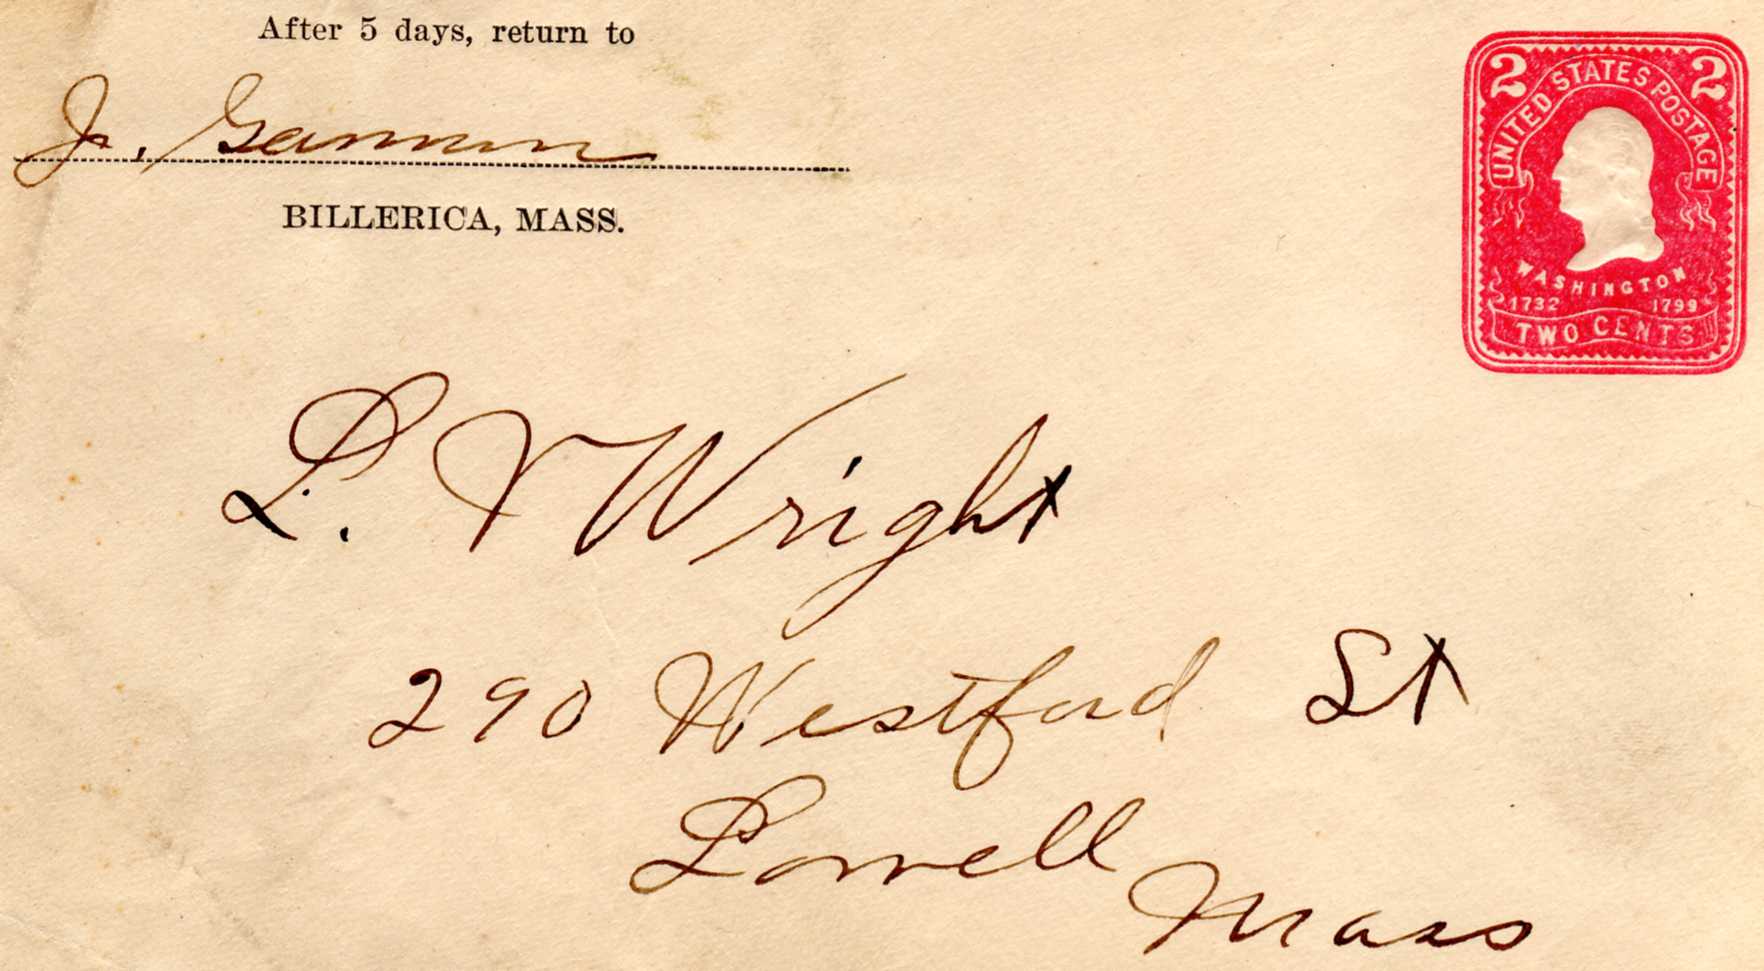 After 5 days, return to
J. Gannon
BILLERICA, MASS.
2 2
UNITED STATES POSTAGE
WASHINGTON
1732 1799
TWO CENTS
L. V Wright
290 Westford St
Lowell
Mass